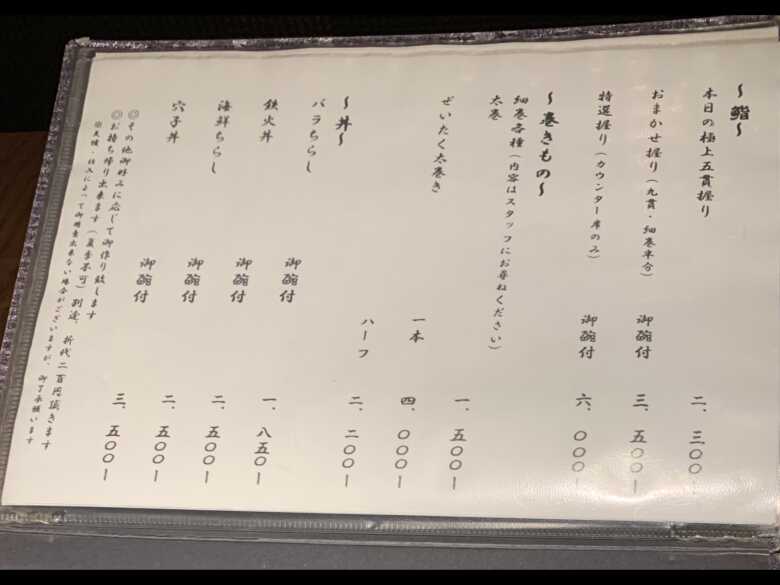 ～鮨～
本日の極上五貫握り 二、三〇〇
おまかせ握り（九貫・細巻半分） 御碗付 三、五〇〇ー
特選握り（カウンター席のみ） 御碗付 六、〇〇〇ー
～巻きもの～
細巻各種（内容はスタッフにお尋ねください）
太巻 一、五〇〇ー
ぜいたく太巻き 一本 四、〇〇〇ー
ハーフ 二、二〇〇ー
～丼～
バラちらし 御碗付 一、八五〇ー
鉄火丼 御碗付 二、五〇〇ー
海鮮ちらし 御碗付 二、五〇〇ー
穴子丼 御碗付 三、五〇〇ー
◎その他御好みに応じて御作り致します
◎お持ち帰り出来ます（夏季不可）別途、折代二百円頂きます
※天候・仕入によって御用意出来ない場合がございますが、御了承願います